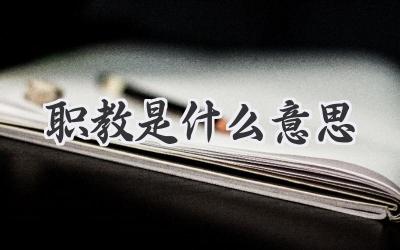 职教是什么意思